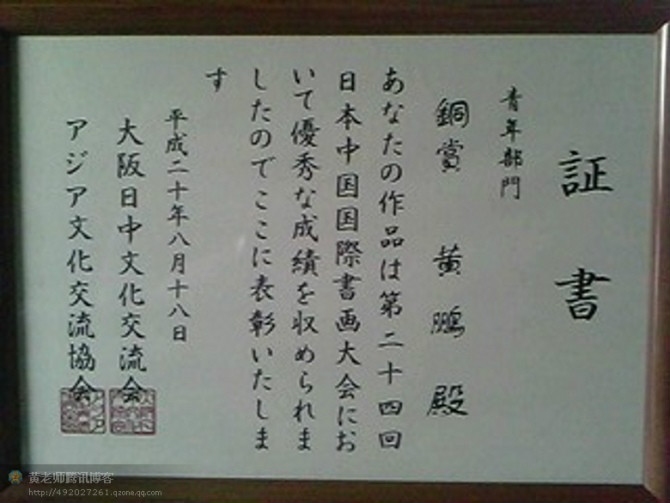 証書
青年部門
銅賞 黄鵬殿
あなたの作品は第二十四回
日本中国国際書画大会にお
いて優秀な成績を収められま
したのでここに表彰いたしま
す
平成二十年八月十八日
大阪日中文化交流会
アジア文化交流協会
黄老师腾讯博客
http://492027261.qzone.qq.com